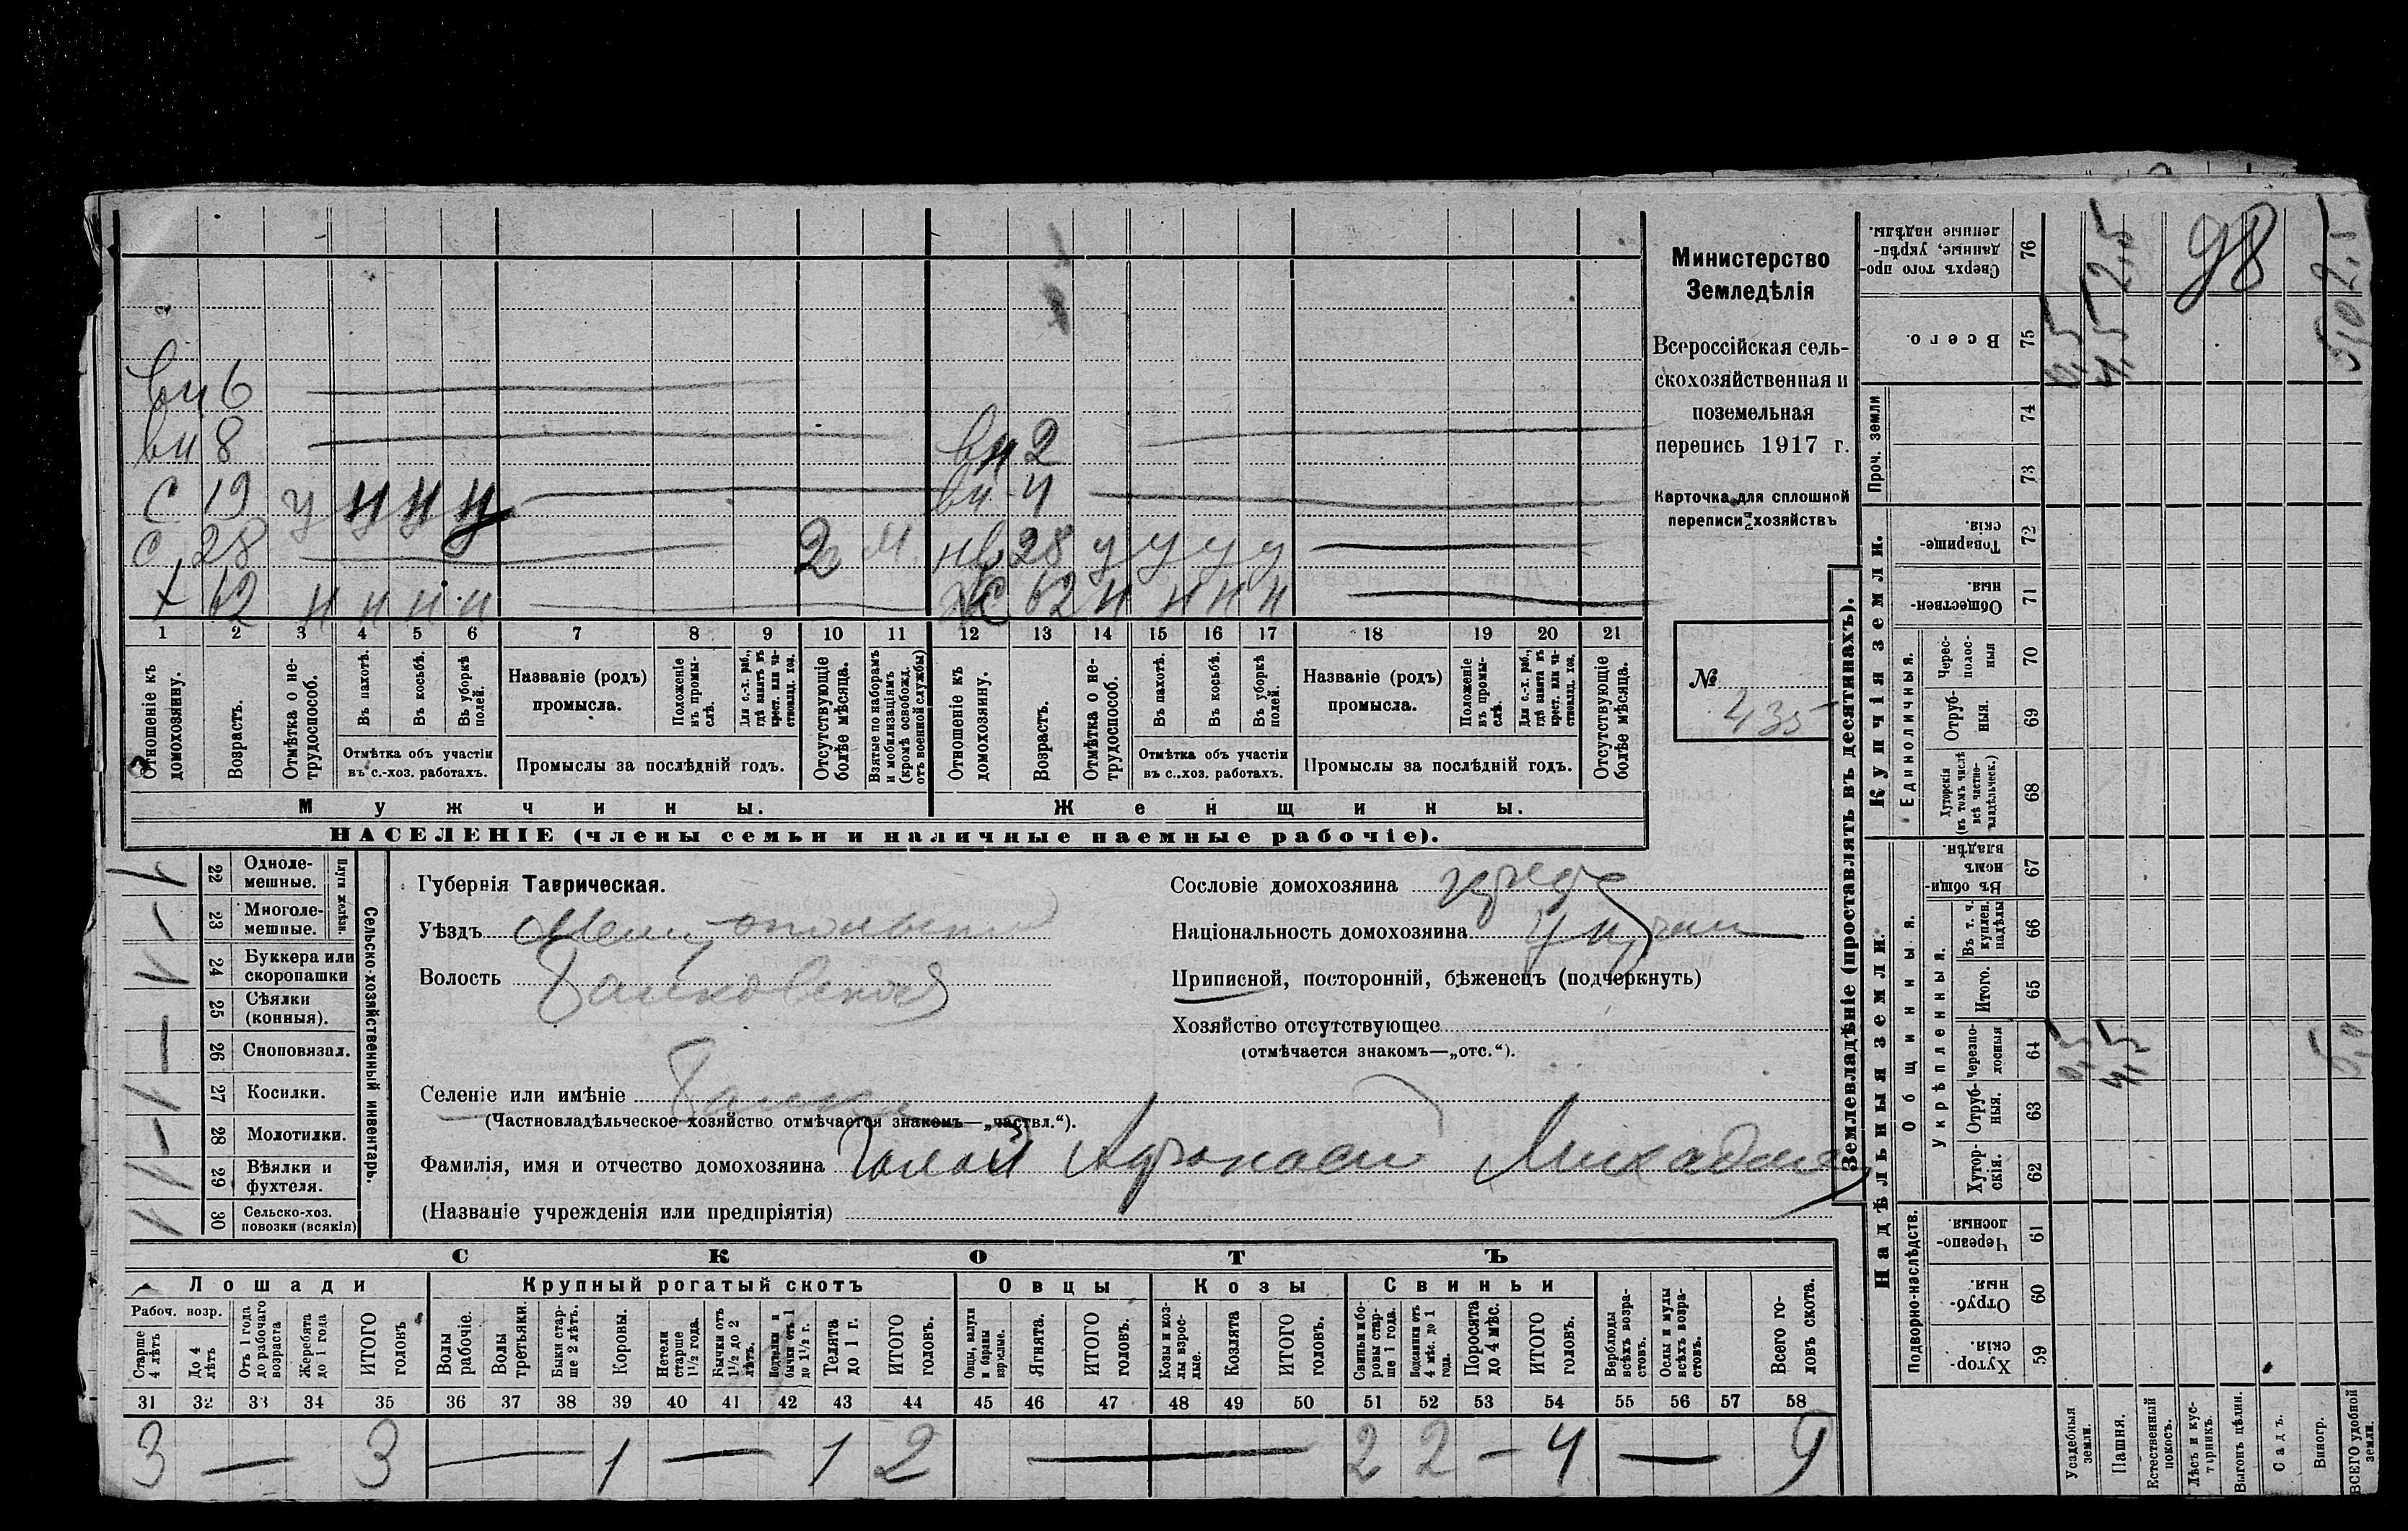 Министерство
Земледѣлія
Всероссійская сель-
скохозяйственная и
поземельная
перепись 1917 г.
Карточка для сплошной
переписи хозяйствъ
№ 435
вн 6
вн 8
вн 2
с 19 у н н н
вн 4
с 28 2 м. нв 28 у у у у
х 62 н н н н ж 62 н н н н
1 2 3 4 5 6 7 8 9 10 11 12 13 14 15 16 17 18 19 20 21
Отношеніе къ домохозяину.
Возрастъ.
Отмѣтка о не-трудоспособ.
Въ пахотѣ.
Въ косьбѣ.
Въ уборкѣ полей.
Отмѣтка объ участіи
въ с.-хоз. работахъ.
Названіе (родъ)
промысла.
Положеніе въ промы-слѣ.
Для с.-х. раб., гдѣ занятъ въ крест. или ча-стновлад. хоз.
Промыслы за послѣдній годъ.
Отсутствующіе болѣе мѣсяца.
Взятые по наборамъ и мобилизаціямъ (кромѣ освобожд. отъ военной службы)
Отношеніе къ домохозяину.
Возрастъ.
Отмѣтка о не-трудоспособ.
Въ пахотѣ.
Въ косьбѣ.
Въ уборкѣ полей.
Отмѣтка объ участіи
въ с.-хоз. работахъ.
Названіе (родъ)
промысла.
Положеніе въ промы-слѣ.
Для с.-х. раб., гдѣ занята въ крест. или ча-стновлад. хоз.
Промыслы за послѣдній годъ.
Отсутствующіе болѣе мѣсяца.
Мужчины. Женщины.
НАСЕЛЕНІЕ (члены семьи и наличные наемные рабочіе).
Сельско-хозяйственный инвентарь.
Плуги желѣзн.
22 Одноле-мешные. 1
23 Многоле-мешные. —
24 Буккера или скоропашки 1
25 Сѣялки (конныя).
26 Сноповязал. —
27 Косилки. 1
28 Молотилки. —
29 Вѣялки и фухтеля. 1
30 Сельско-хоз. повозки (всякія) 1
Губернія Таврическая.
Уѣздъ Мелитопольскій
Волость Банковская
Селеніе или имѣніе Банки
(Частновладѣльческое хозяйство отмѣчается знакомъ—„частвл.“).
Фамилія, имя и отчество домохозяина Голой Афонасій Михайлов
(Названіе учрежденія или предпріятія)
Сословіе домохозяина крест
Національность домохозяина
Приписной, посторонній, бѣженецъ (подчеркнуть)
Хозяйство отсутствующее
(отмѣчается знакомъ—„отс.“).
СКОТЪ
Лошади Крупный рогатый скотъ Овцы Козы Свиньи
Рабоч. возр.
Старше 4 лѣтъ
До 4 лѣтъ
Отъ 1 года до рабочаго возраста
Жеребята до 1 года
ИТОГО головъ
Волы рабочіе.
Волы третьяки.
Быки стар-ше 2 лѣтъ.
Коровы.
Нетели старше 1½ года.
Бычки отъ 1½ до 2 лѣтъ.
Подтелки и бычки отъ 1 до 1½ г.
Телята до 1 г.
ИТОГО головъ.
Овцы, валухи и бараны взрослые.
Ягнята.
ИТОГО головъ.
Козы и коз-лы взрос-лые.
Козлята
ИТОГО головъ.
Свиньи и бо-ровы стар-ше 1 года.
Подсвинки отъ 4 мѣс. до 1 года.
Поросята до 4 мѣс.
ИТОГО головъ.
Верблюды всѣхъ возра-стовъ.
Ослы и мулы всѣхъ возра-стовъ.
Всего го-ловъ скота.
31 32 33 34 35 36 37 38 39 40 41 42 43 44 45 46 47 48 49 50 51 52 53 54 55 56 57 58
3 — 3 — 1 — 1 2 — 2 2 — 4 — 9
Землевладѣніе (проставлять въ десятинахъ).
Надѣльныя земли. Купчія земли. Проч. земли
Подворно-наслѣдств.
Общинныя.
Укрѣпленныя.
Единоличныя.
59 Хутор-скія.
60 Отруб-ныя.
61 Черезпо-лосныя
62 Хутор-скія.
63 Отруб-ныя.
64 Черезпо-лосныя 0,5 4,5 5,0
65 Итого.
66 Въ т. ч. куплен. надѣлы
67 Въ общи-номъ владѣн.
68 Хуторскія (въ томъ числѣ всѣ частно-владѣльческ.)
69 Отруб-ныя.
70 Черес-полос-ныя
71 Обществен-ныя
72 Товарище-скія.
73
74
75 Всего. 0,5 4,5
76 Сверхъ того про-данные, укрѣп-ленные надѣлы. 2,5
98
Усадебныя земли.
Пашня.
Естественный покосъ.
Лѣсъ и кус-тарникъ.
Выгонъ цѣлин.
Садъ.
Виногр.
ВСЕГО удобной земли.